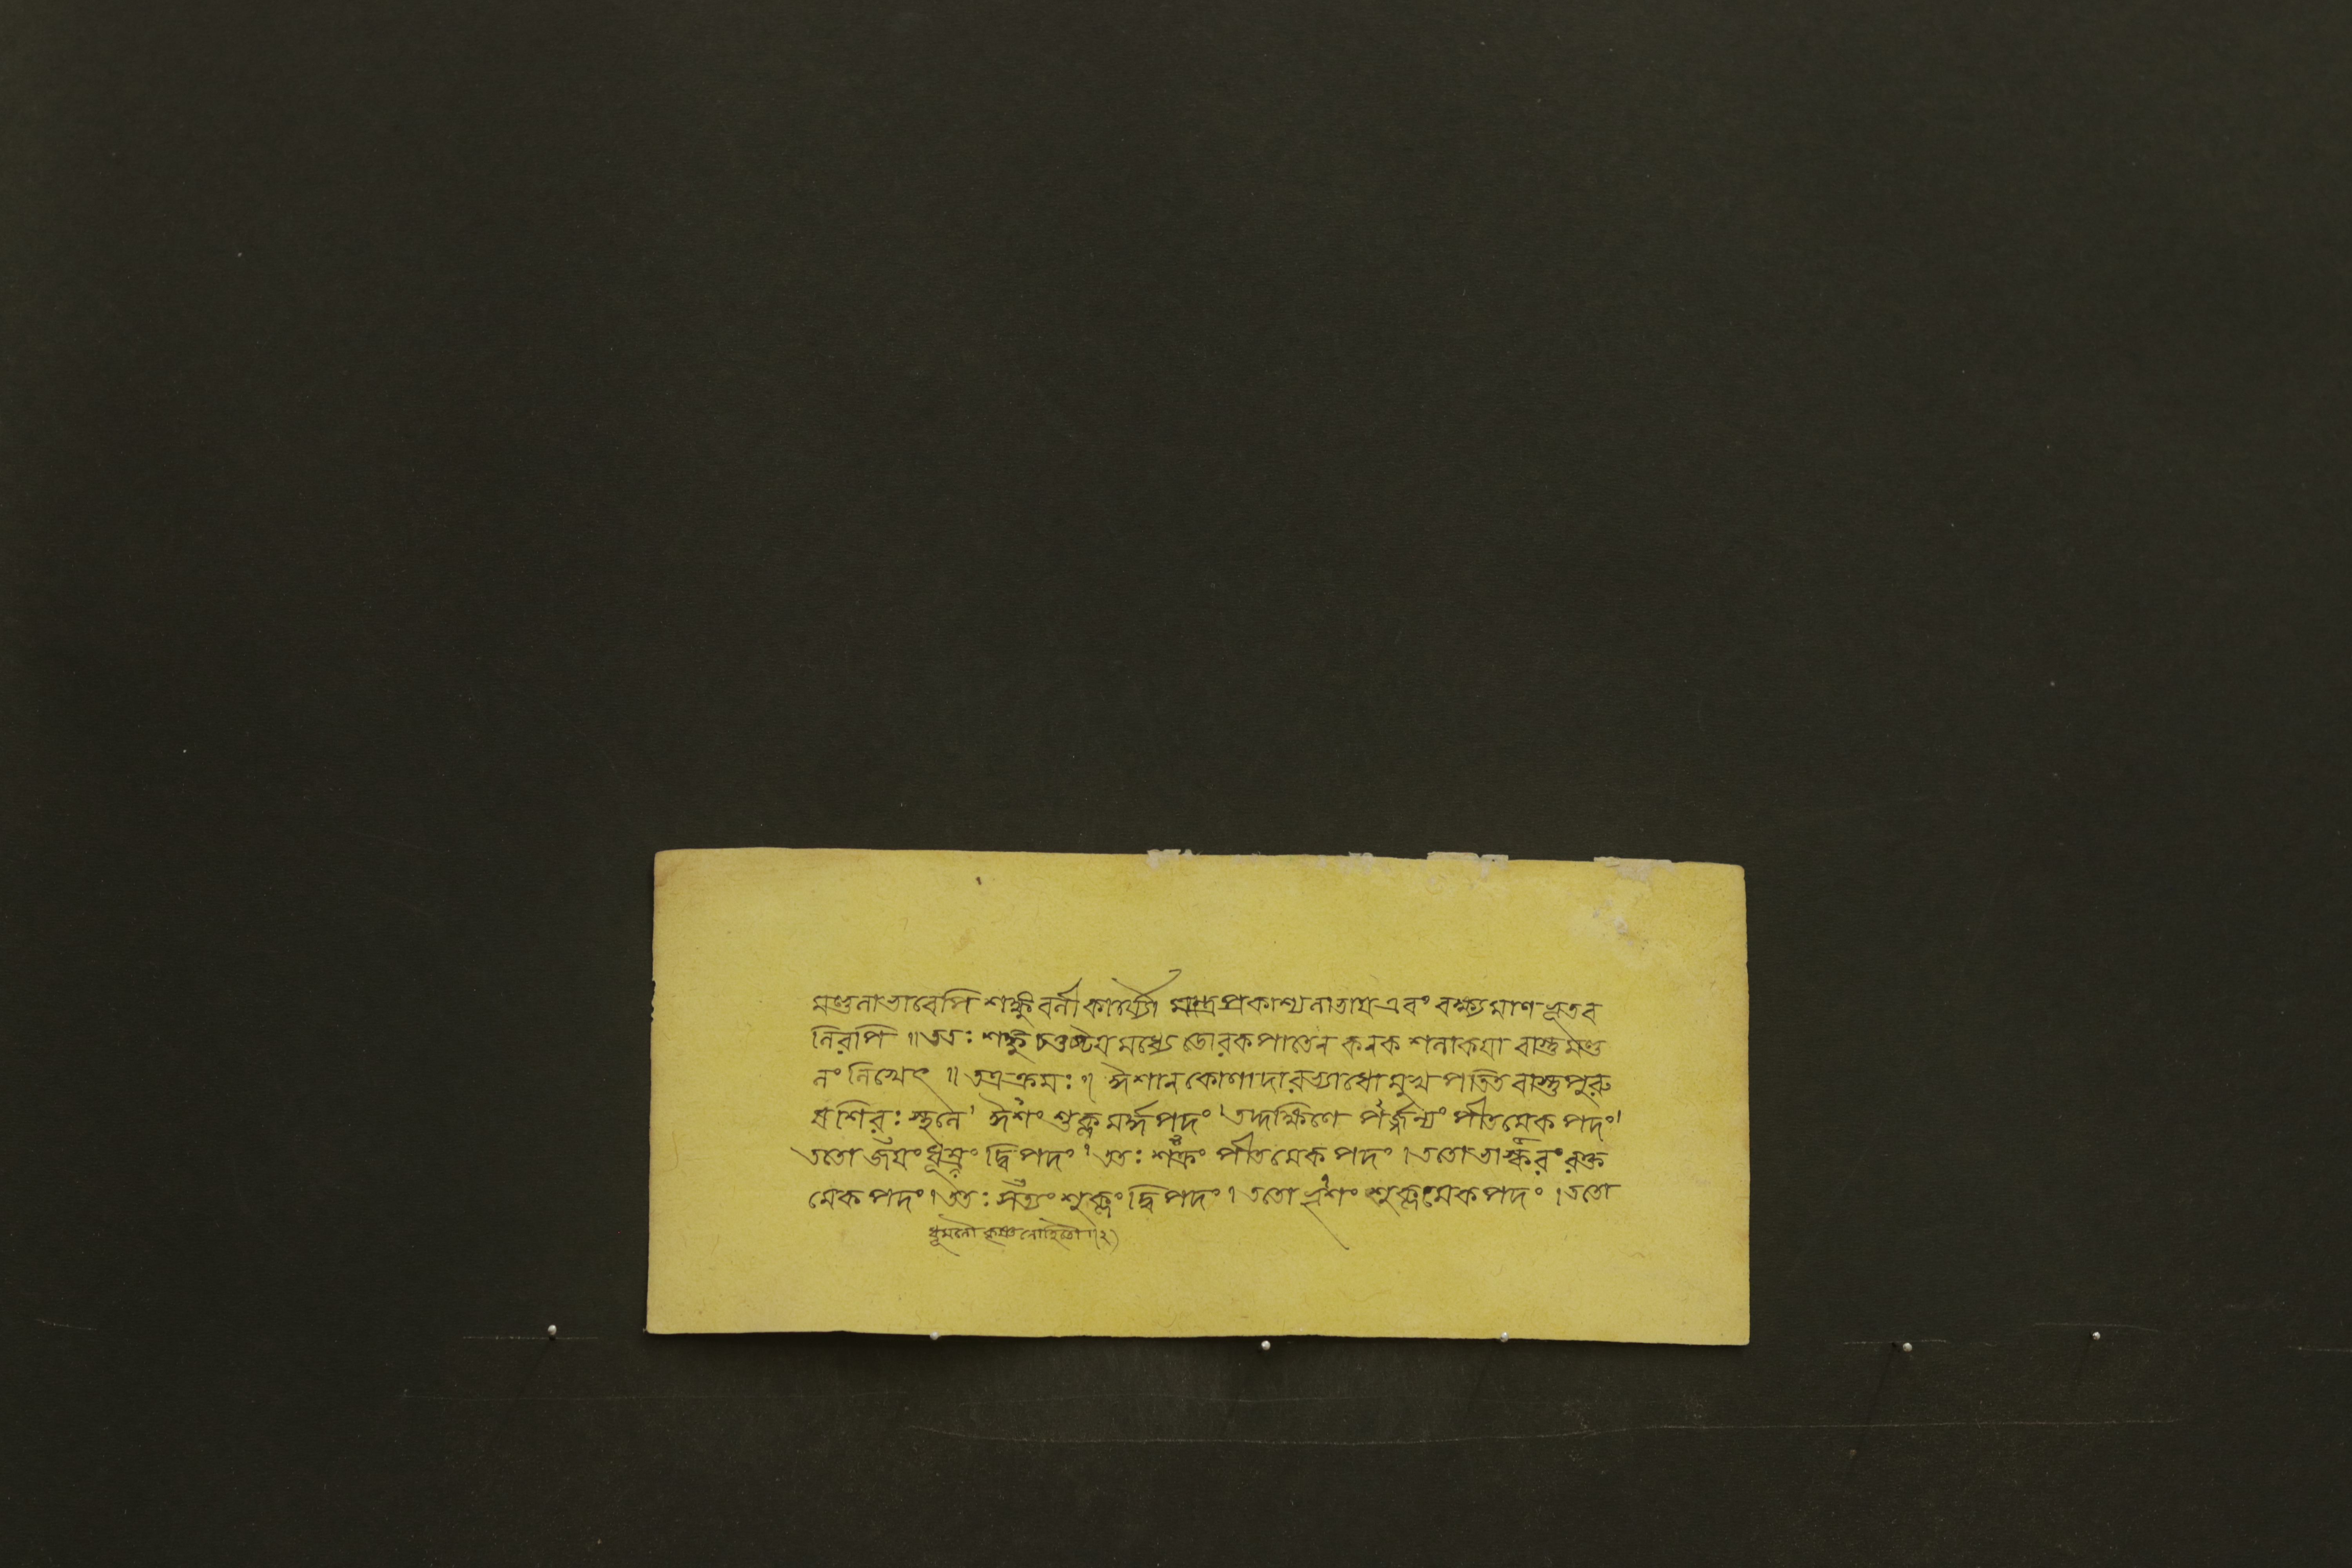 মণ্ডলাভাবেপি শঙ্কু বলী কার্য্যৌ মন্ত্রপ্রকাশ্যলাভায এবং বক্ষ্যমাণ ভূতব
লিরপি ॥ ততঃ শঙ্কু চতুষ্টয মধ্যে ডোরকপাতেন কনক শলাকযা বাস্তুমণ্ড
লং লিখেৎ ॥ তত্র ক্রমঃ ॥ ঈশান কোণাদারভ্যাধোমুখ পতিত বাস্তুপুরু
ষ শিরঃ স্থলে । ঈশং শুক্ল মর্দ্ধপদং । তদ্দক্ষিণে পর্জ্জন্যং পীতমেক পদং ।
ততো জযং ধূম্রং দ্বিপদং । ততঃ শক্রং পীতমেক পদং । ততো ভাস্করং রক্ত
মেক পদং । ততঃ সত্যং শুক্লং দ্বিপদং । ততো ভৃশং শুক্লমেকপদং । ততো
ধূমলৌ কৃষ্ণলোহিতৌ ॥২)